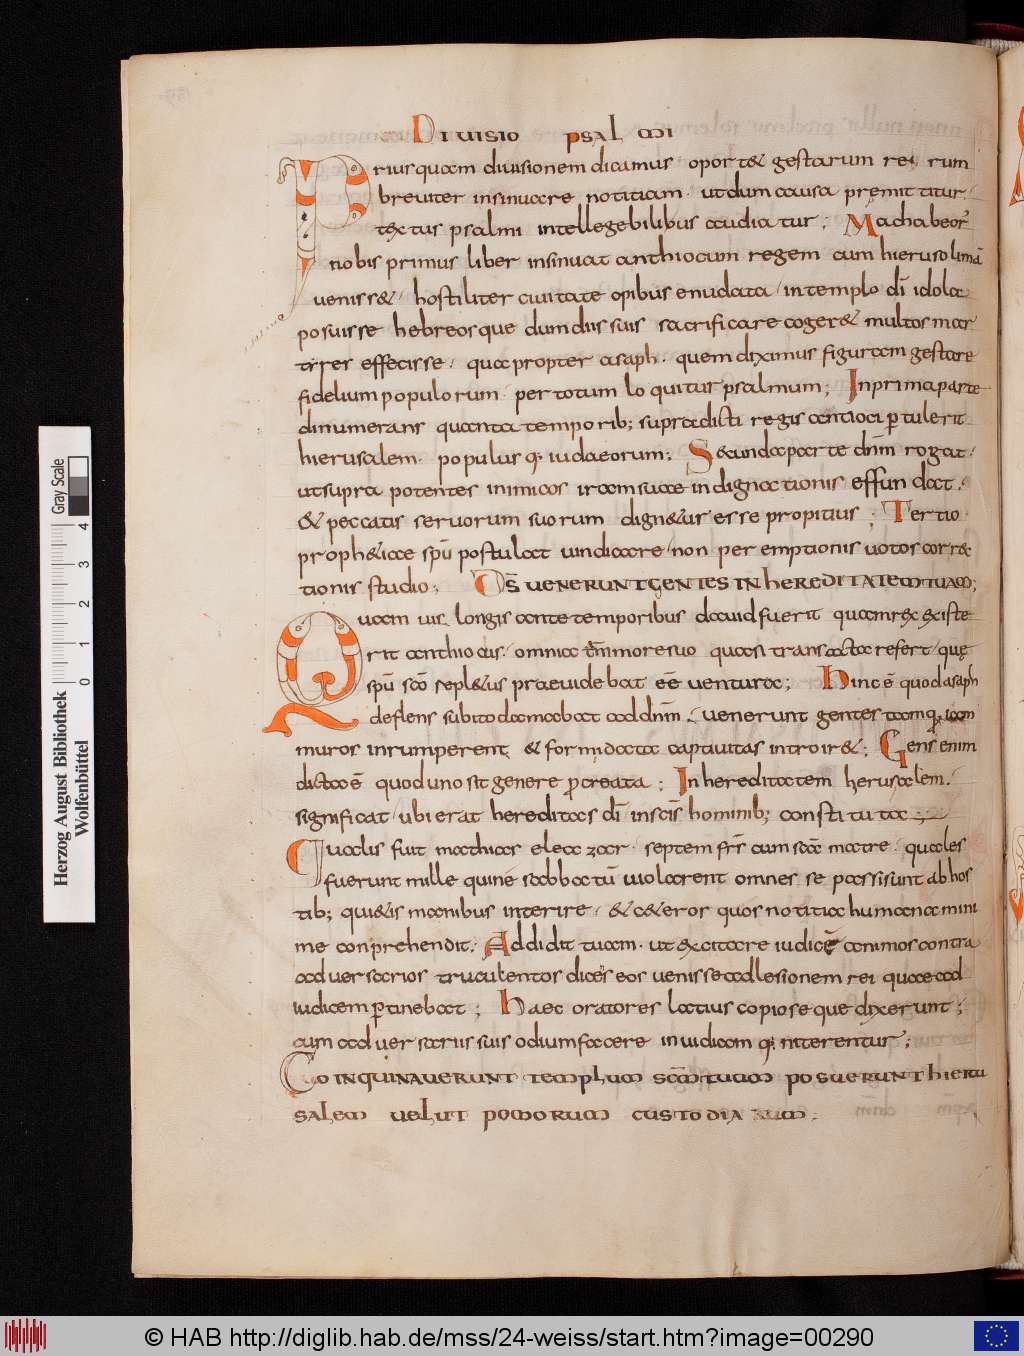 DIUISIO PSALMI
Priusquam diuisionem dicamus · oport& gestarum rei rum
breuiter insinuare notitiam · ut dum causa premittitur ·
textus psalmi intellegebilibus audiatur ; Machabeor̄
nobis primus liber insinuat anthiocum regem cum hierusolimā
uenisse& · hostiliter ciuitate opibus enudata · in templo dī idola
posuisse hebreosque dum diis suis sacrificare coger& multos mar
tyres effecisse · quapropter asaph · quem diximus figuram gestare
fidelium populorum · per totum loquitur psalmum ; In prima parte
dinumerans quanta temporib; supradicti regis antioci ꝑtulerit
hierusalem · populusq; iudaeorum ; Secunda parte dn̄m rogat ·
ut supra potentes inimicos iram suae indignationis effundat ·
& peccatis seruorum suorum dign&ur esse propitius ; Tertio
proph&iae sp̄u postulat uindicare · non per emptionis uotos corr&
tionis studio ; D̄S UENERUNT GENTES IN HEREDITATEM TUAM ;
Quam uis longis ante temporibus dauid fuerit quam rex existe
rit anthiocus · omnia tam̄ more suo quasi transacta refert · quę
sp̄u sc̄o repl&us praeuidebat eē uentura ; Hinc ē quod asaph
deflens subito clamabat ad dn̄m · uenerunt gentes tamq; iam
muros inrumperent & formidata captiuitas introir& ; Gens enim
dicta ē quod uno sit genere ꝓcreata ; In hereditatem herusalēm ·
significat · ubi erat hereditas dī in sc̄is hominib; constituta ;
Qualis fuit mathias eleazar · septem fr̄s cum sc̄a matre · quales
fuerunt mille qui nē sabbatū uiolarent omnes se passi sunt ab hos
tib; qui&is manibus interire · & c&eros quos notitia humana mini
me conprehendit · Addidit tuam · ut excitare iudicē animos contra
aduersarios truculentos dicens eos uenisse ad lesionem rei quae ad
iudicem ꝑtinebat ; Haec oratores latius copioseque dixerunt ;
cum aduersariis suis odium facere inuidiamq; niterentur ;
COINQUINAUERUNT TEMPLUM SC̄M TUUM POSUERUNT HIERU
SALEM UELUT POMORUM CUSTODIARIUM :
Gray Scale
0 1 2 3 4
Herzog August Bibliothek
Wolfenbüttel
© HAB http://diglib.hab.de/mss/24-weiss/start.htm?image=00290